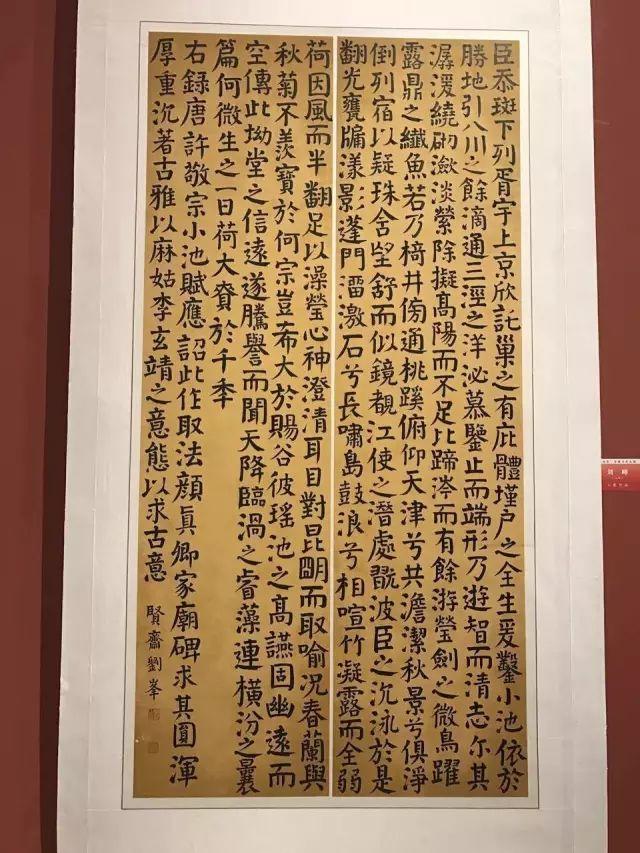 臣忝斑下列胥宇上京欣託巢之有庇體墐户之全生爰鑿小池依於
勝地引八川之餘滴通三涇之洋泌慕鑒止而端形乃遊智而清志尔其
潺湲繞砌瀲淡縈除擬高陽而不足比蹄涔而有餘游瑩劍之微鳥躍
露鼎之纖魚若乃椅井傍通桃蹊俯仰天津兮共澹潔秋景兮俱淨
倒列宿以疑珠含望舒而似鏡覩江使之潛處翫波臣之沉泳於是
翻光甕牖漾影蓬門溜激石兮長嘯島鼓浪兮相喧竹凝露而全弱
荷因風而半翻足以澡瑩心神澄清耳目對昆明而取喻况春蘭與
秋菊不羨寶於何宗豈希大於賜谷彼瑤池之高讌固幽遠而
空傳此坳堂之信遠遂騰譽而聞天降臨渦之睿藻連橫汾之曩
篇何微生之一日荷大賚於千季
右録唐許敬宗小池賦應詔此作取法顔真卿家廟碑求其圓渾
厚重沉著古雅以麻姑李玄靖之意態以求古意
賢齋劉峯